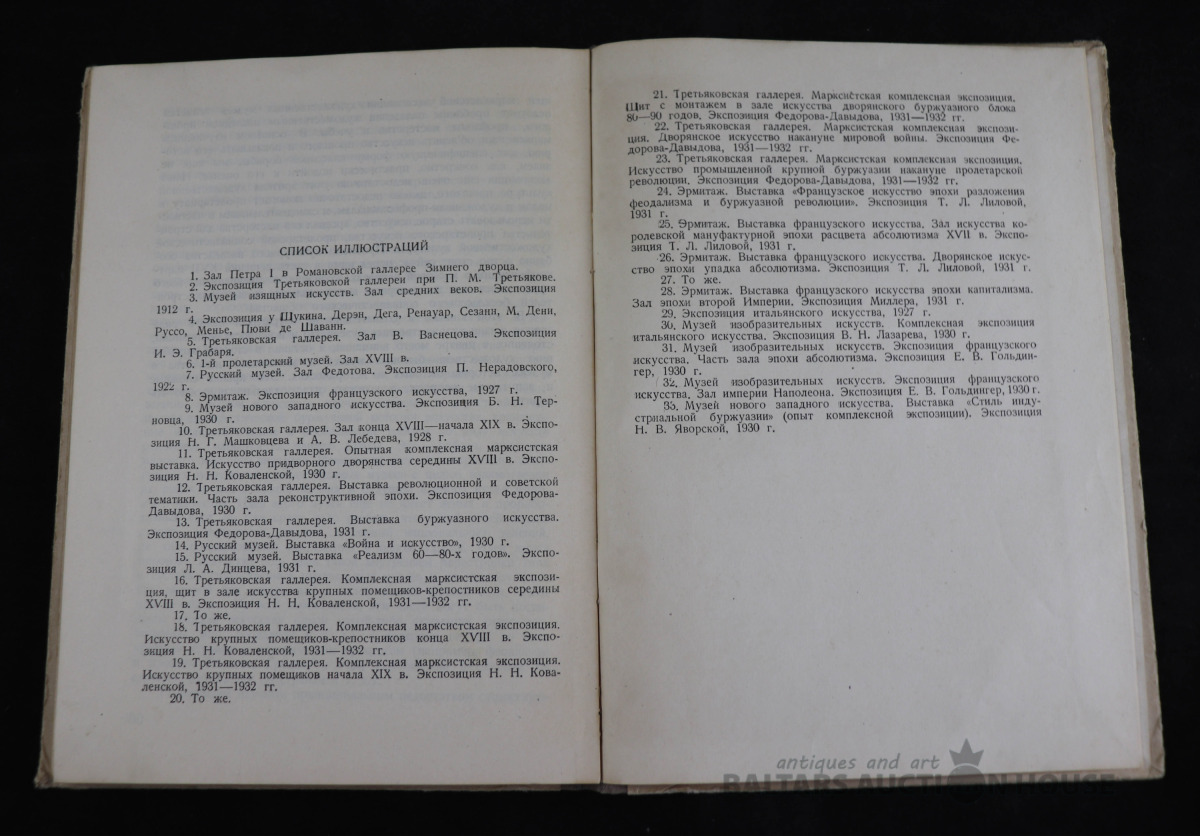 СПИСОК ИЛЛЮСТРАЦИЙ
1. Зал Петра I в Романовской галлерее Зимнего дворца.
2. Экспозиция Третьяковской галлереи при П. М. Третьякове.
3. Музей изящных искусств. Зал средних веков. Экспозиция
1912 г.
4. Экспозиция у Щукина. Дерэн, Дега, Ренауар, Сезанн, М. Дени,
Руссо, Менье, Пюви де Шаванн.
5. Третьяковская галлерея. Зал В. Васнецова. Экспозиция
И. Э. Грабаря.
6. 1-й пролетарский музей. Зал XVIII в.
7. Русский музей. Зал Федотова. Экспозиция П. Нерадовского,
1922 г.
8. Эрмитаж. Экспозиция французского искусства, 1927 г.
9. Музей нового западного искусства. Экспозиция Б. Н. Тер-
новца, 1930 г.
10. Третьяковская галлерея. Зал конца XVIII—начала XIX в. Экспо-
зиция Н. Г. Машковцева и А. В. Лебедева, 1928 г.
11. Третьяковская галлерея. Опытная комплексная марксистская
выставка. Искусство придворного дворянства середины XVIII в. Экспо-
зиция Н. Н. Коваленской, 1930 г.
12. Третьяковская галлерея. Выставка революционной и советской
тематики. Часть зала реконструктивной эпохи. Экспозиция Федорова-
Давыдова, 1930 г.
13. Третьяковская галлерея. Выставка буржуазного искусства.
Экспозиция Федорова-Давыдова, 1931 г.
14. Русский музей. Выставка «Война и искусство», 1930 г.
15. Русский музей. Выставка «Реализм 60—80-х годов». Экспо-
зиция Л. А. Динцева, 1931 г.
16. Третьяковская галлерея. Комплексная марксистская экспози-
ция, щит в зале искусства крупных помещиков-крепостников середины
XVIII в. Экспозиция Н. Н. Коваленской, 1931—1932 гг.
17. То же.
18. Третьяковская галлерея. Комплексная марксистская экспозиция.
Искусство крупных помещиков-крепостников конца XVIII в. Экспо-
зиция Н. Н. Коваленской, 1931—1932 гг.
19. Третьяковская галлерея. Комплексная марксистская экспозиция.
Искусство крупных помещиков начала XIX в. Экспозиция Н. Н. Кова-
ленской, 1931—1932 гг.
20. То же.
21. Третьяковская галлерея. Марксистская комплексная экспозиция.
Щит с монтажем в зале искусства дворянского буржуазного блока
80—90 годов. Экспозиция Федорова-Давыдова, 1931—1932 гг.
22. Третьяковская галлерея. Марксистская комплексная экспози-
ция. Дворянское искусство накануне мировой войны. Экспозиция Фе-
дорова-Давыдова, 1931—1932 гг.
23. Третьяковская галлерея. Марксистская комплексная экспозиция.
Искусство промышленной крупной буржуазии накануне пролетарской
революции. Экспозиция Федорова-Давыдова, 1931—1932 гг.
24. Эрмитаж. Выставка «Французское искусство эпохи разложения
феодализма и буржуазной революции». Экспозиция Т. Л. Лиловой,
1931 г.
25. Эрмитаж. Выставка французского искусства. Зал искусства ко-
ролевской мануфактурной эпохи расцвета абсолютизма XVII в. Экспо-
зиция Т. Л. Лиловой, 1931 г.
26. Эрмитаж. Выставка французского искусства. Дворянское искус-
ство эпохи упадка абсолютизма. Экспозиция Т. Л. Лиловой, 1931 г.
27. То же.
28. Эрмитаж. Выставка французского искусства эпохи капитализма.
Зал эпохи второй Империи. Экспозиция Миллера, 1931 г.
29. Экспозиция итальянского искусства, 1927 г.
30. Музей изобразительных искусств. Комплексная экспозиция
итальянского искусства. Экспозиция В. Н. Лазарева, 1930 г.
31. Музей изобразительных искусств. Экспозиция французского
искусства. Часть зала эпохи абсолютизма. Экспозиция Е. В. Гольдин-
гер, 1930 г.
32. Музей изобразительных искусств. Экспозиция французского
искусства. Зал империи Наполеона. Экспозиция Е. В. Гольдингер, 1930 г.
33. Музей нового западного искусства. Выставка «Стиль инду-
стриальной буржуазии» (опыт комплексной экспозиции). Экспозиция
Н. В. Яворской, 1930 г.
antiques and art
BALTARS AUCTION HOUSE